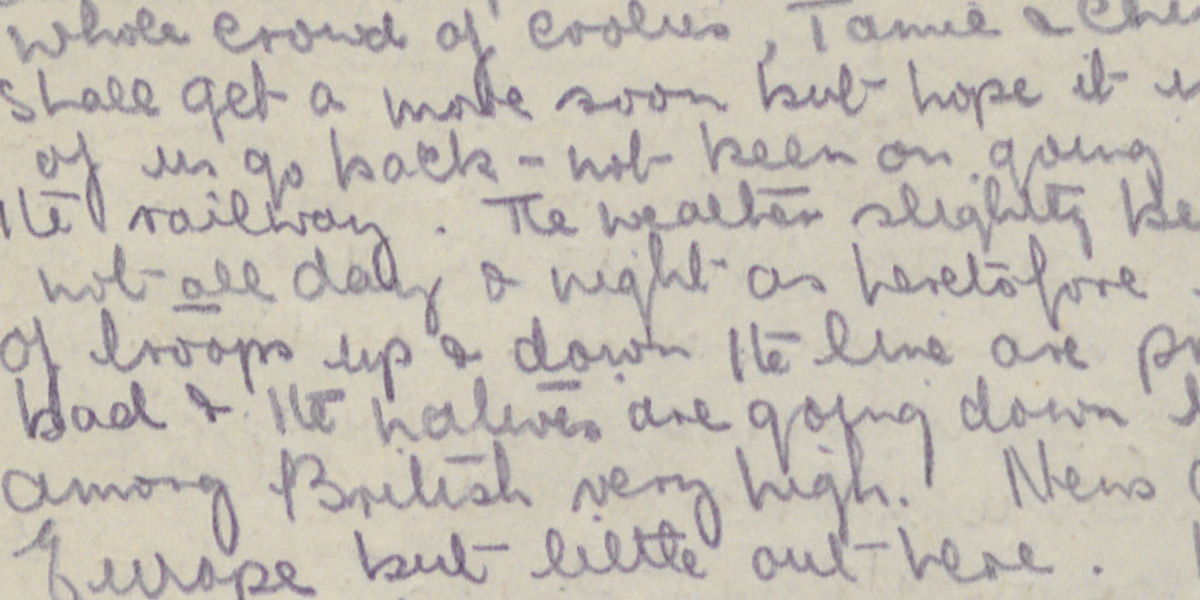 whole crowd of coolies, Tamil & Chi
shall get a move soon but hope it
of us go back - not keen on going
the railway. The weather slightly be
not all day & night as heretofore
of troops up & down the line are
bad & the natives are going down
among British very high. News
Europe but little out here.